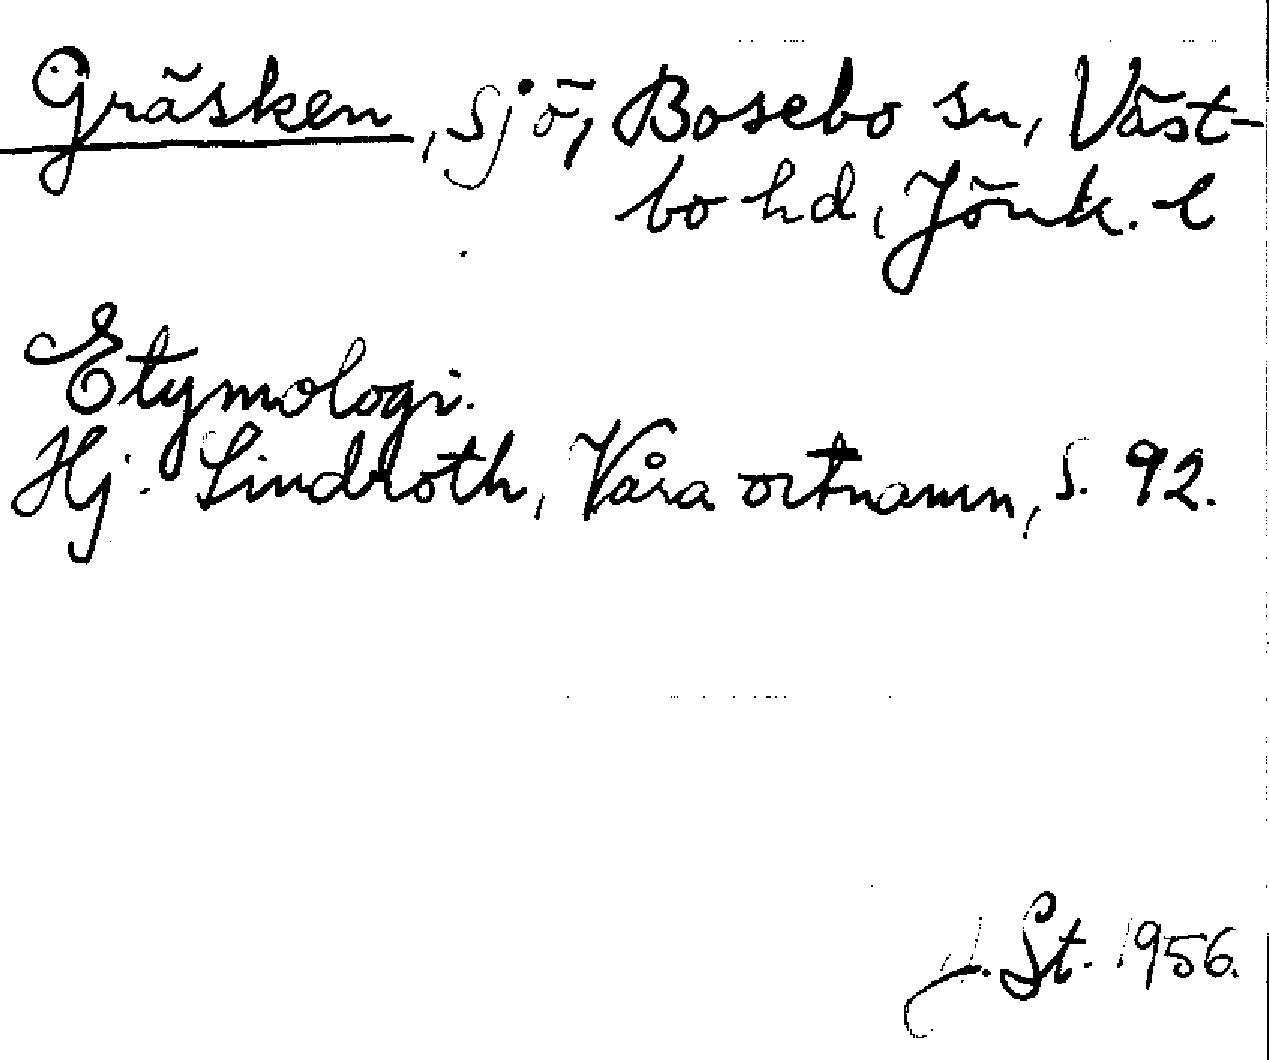 Gräsken, sjö, Bosebo sn, Väst-
bo hd, Jönk. l
Etymologi.
Hj. Lindroth, Våra ortnamn, s. 92.
J. St. 1956.